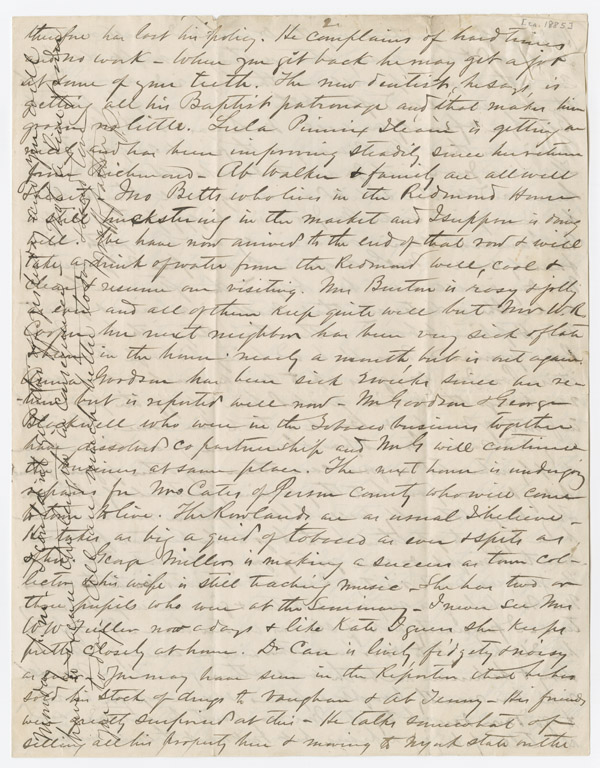 2
[ca. 1885]
therefore has lost his policy. He complains of hard times
and no work – When you git back he may get a job
at some of your teeth. The new dentist, he says, is
getting all his Baptist patronage and that makes him
no little. Lula is getting on
and has been improving steadily since her return
from Richmond – Ab Walker & family are all well
Jno Betts who lives in the Redmond House
is still huckstering in the market and I suppose is doing
well. We have now arrived to the end of that row & will
take a drink of water from the Redmond well, cool &
clear & resume our visiting. Mrs Burton is rosy & jolly
as ever and all of them keep quite well but Mrs W R
her next neighbor has been very sick of late
in the house nearly a month but is out again.
Goodson has been sick 2 weeks since her re-
turn but is reported well now – Mr Goodson & George
Blackwell who were in the Tobacco business together
have dissolved copartnership and Mr G will continue
the business at same place. The next house is undergoing
repairs for Mrs Cates of Person County who will come
to town to live. The Rowlands are as usual I believe –
He takes as big a quid of tobacco as ever & spits as
often. George Miller is making a success as town col-
lector & his wife is still teaching music – She has two or
three pupils who were at the Seminary – I never see Mrs
W W Miller now a days & like Kate I guess she keeps
pretty closely at home. Dr Carr is lively, fidgety & noisy
as ever. You may have seen in the Reporter that he has
sold his stock of drugs to Vaughan & Ab – His friends
were greatly surprised at this – He talks somewhat of
selling all his property here & moving to N York state on the